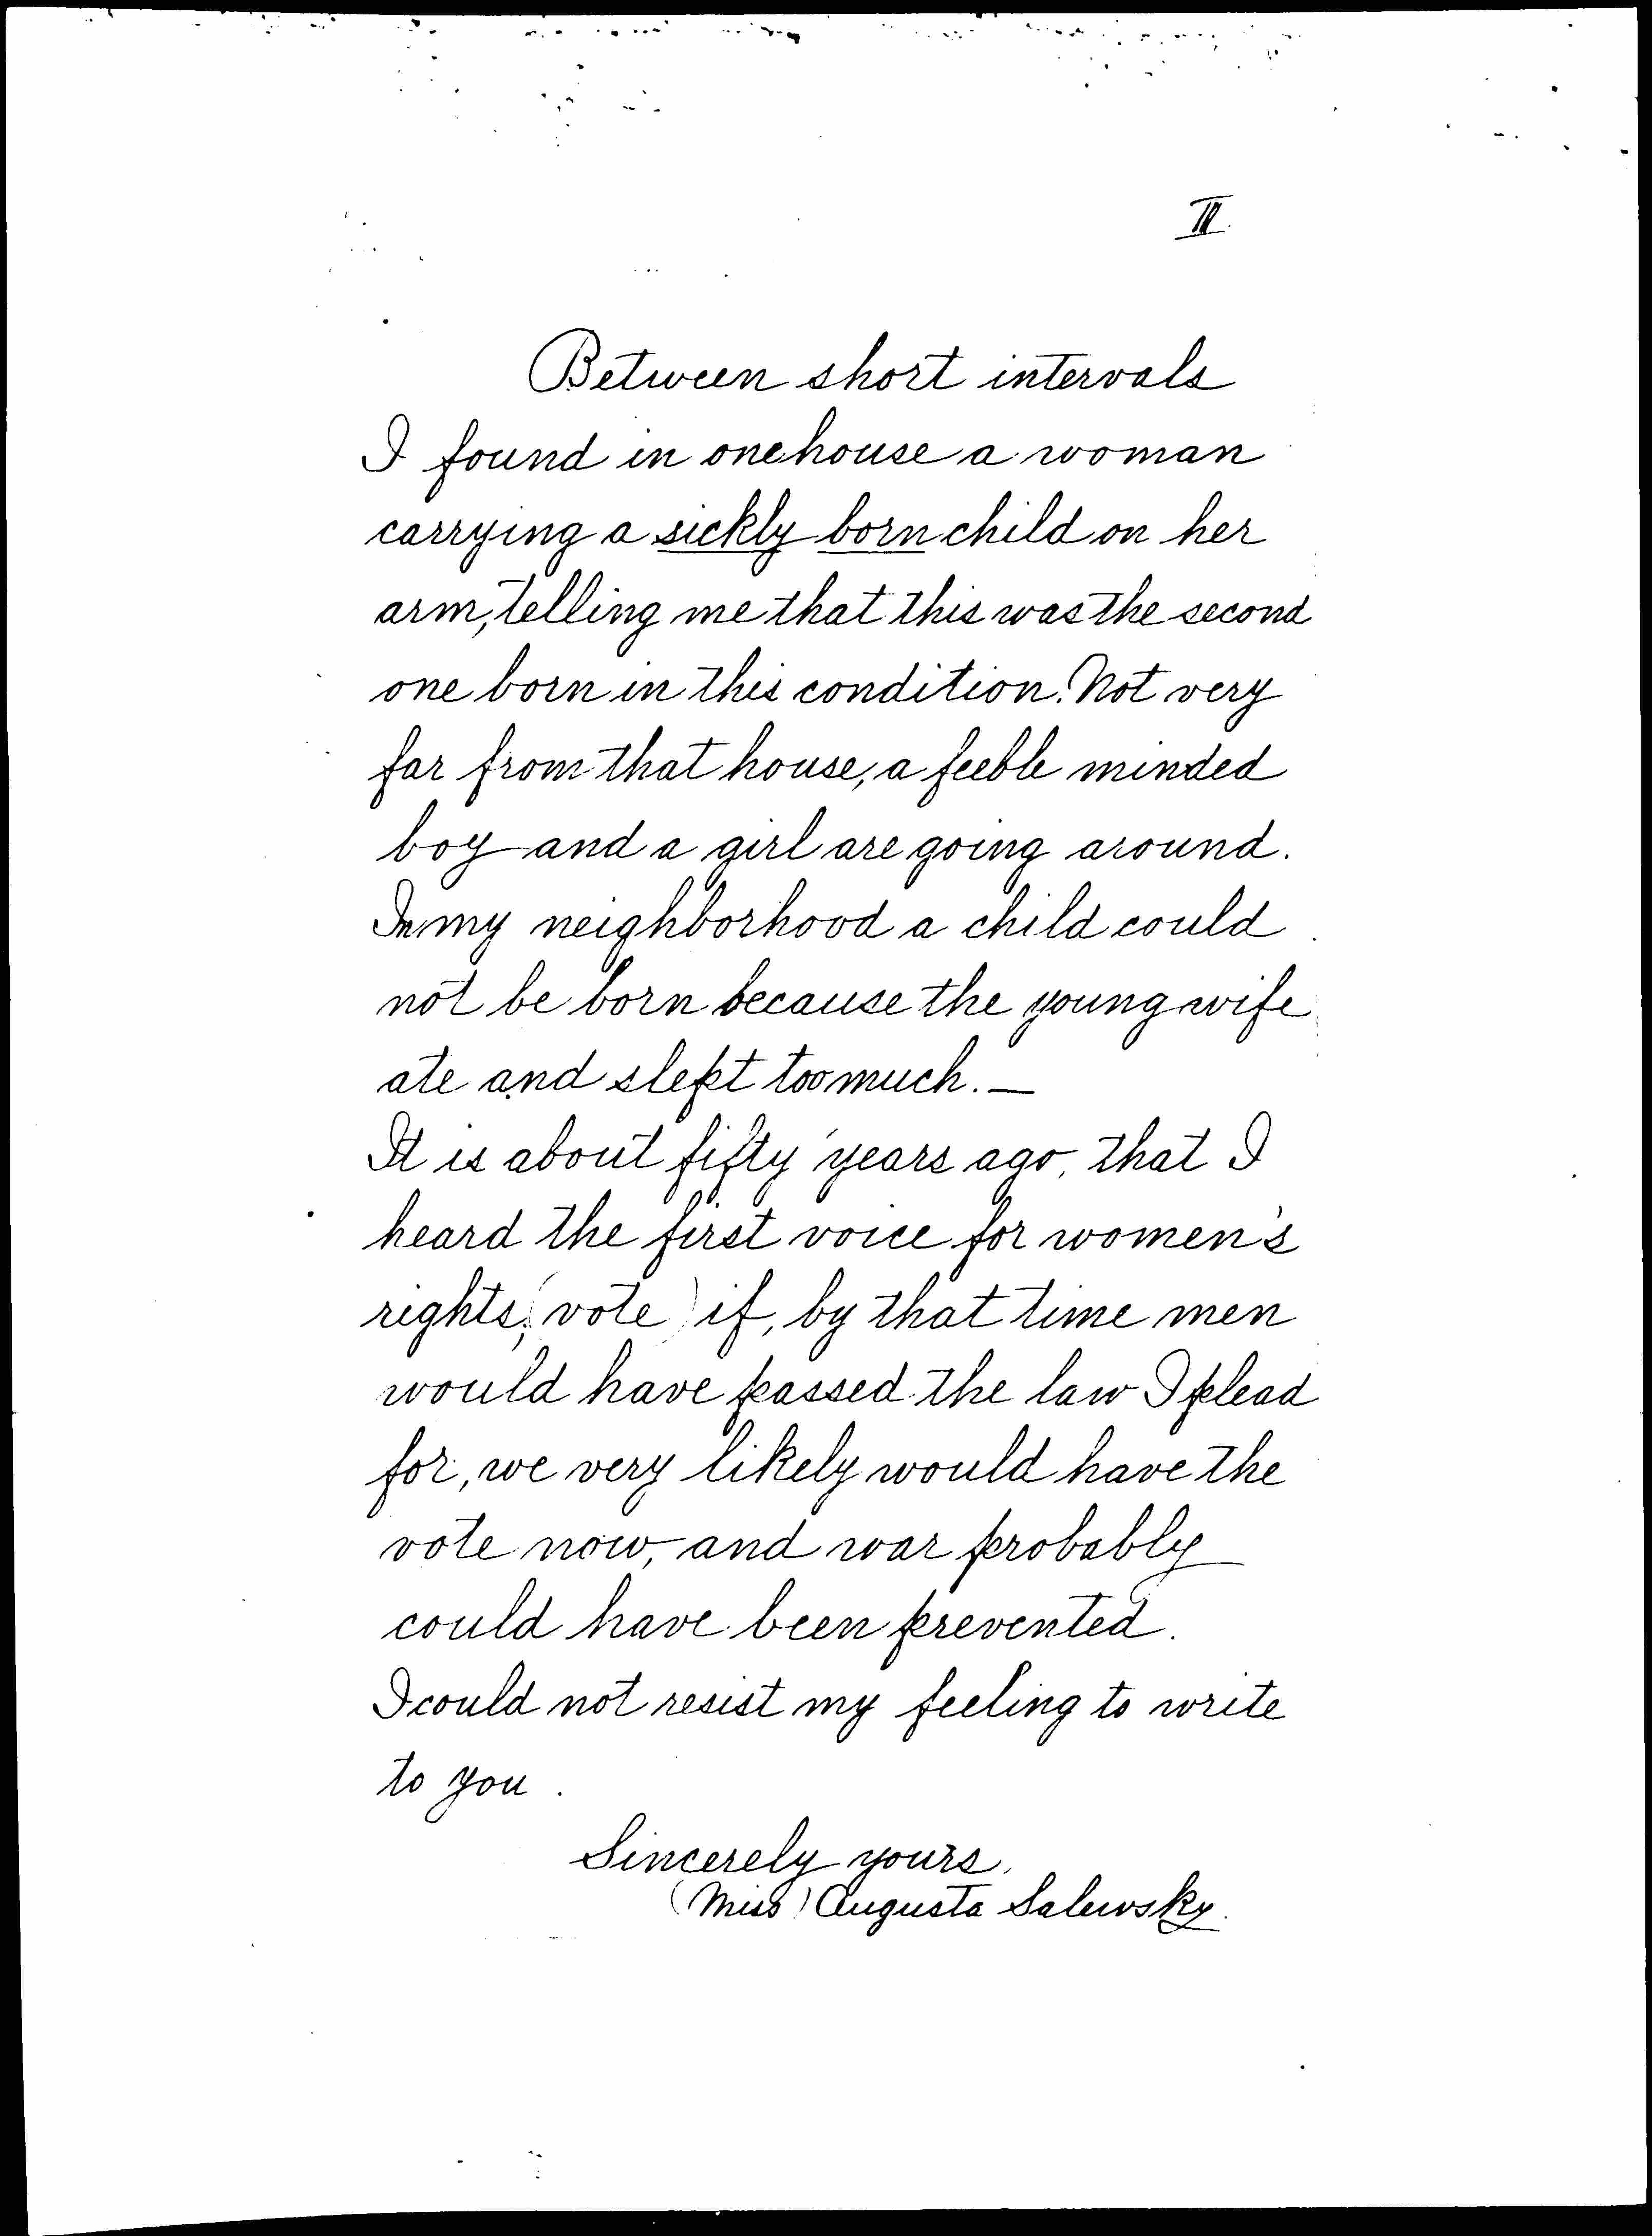 II.
Between short intervals
I found in one house a woman
carrying a sickly born child on her
arm, telling me that this was the second
one born in this condition. Not very
far from that house, a feeble minded
boy and a girl are going around.
In my neighborhood a child could
not be born because the young wife
ate and slept too much. —
It is about fifty years ago, that I
heard the first voice for women's
rights, (vote) if, by that time men
would have passed the law I plead
for, we very likely would have the
vote now, and war probably
could have been prevented.
I could not resist my feeling to write
to you.
Sincerely yours,
(Miss) Augusta Salewsky.